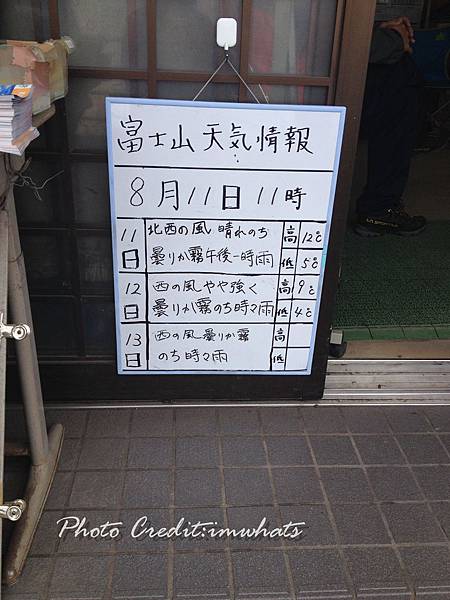 富士山天気情報
8月11日11時
11日
北西の風 晴れのち
曇りか霧午後一時雨
高 12℃
低 5℃
12日
西の風やや強く
曇りか霧のち時々雨
高 9℃
低 4℃
13日
西の風曇りか霧
のち時々雨
高
低
Photo Credit:imwhats